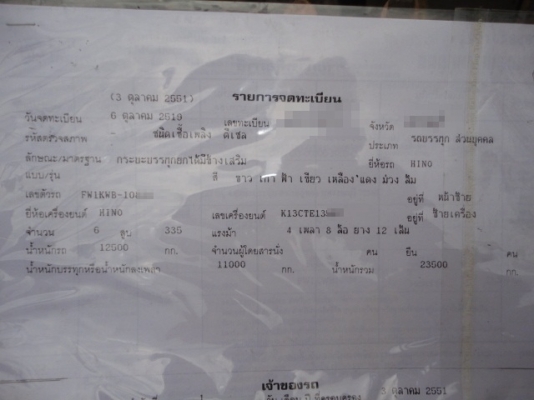 (3 ตุลาคม 2551) รายการจดทะเบียน
วันจดทะเบียน 6 ตุลาคม 2510 เลขทะเบียน จังหวัด
รหัสตรวจสภาพ ชนิดเชื้อเพลิง ดีเซล ประเภท รถบรรทุก ส่วนบุคคล
ลักษณะ/มาตรฐาน กระบะบรรทุกยกได้มีข้างเสริม ยี่ห้อรถ HINO
แบบ/รุ่น สี ขาว เทา ฟ้า เขียว เหลือง แดง ม่วง ส้ม
เลขตัวรถ FW1KWB-10 อยู่ที่ หน้าซ้าย
ยี่ห้อเครื่องยนต์ HINO เลขเครื่องยนต์ K13CTE13 อยู่ที่ ซ้ายเครื่อง
จำนวน 6 สูบ 335 แรงม้า 4 เพลา 8 ล้อ ยาง 12 เส้น
น้ำหนักรถ 12500 กก. จำนวนผู้โดยสารนั่ง คน ยืน คน
น้ำหนักบรรทุกหรือน้ำหนักลงเพลา 11000 กก. น้ำหนักรวม 23500 กก.
เจ้าของรถ
ตุลาคม 2551